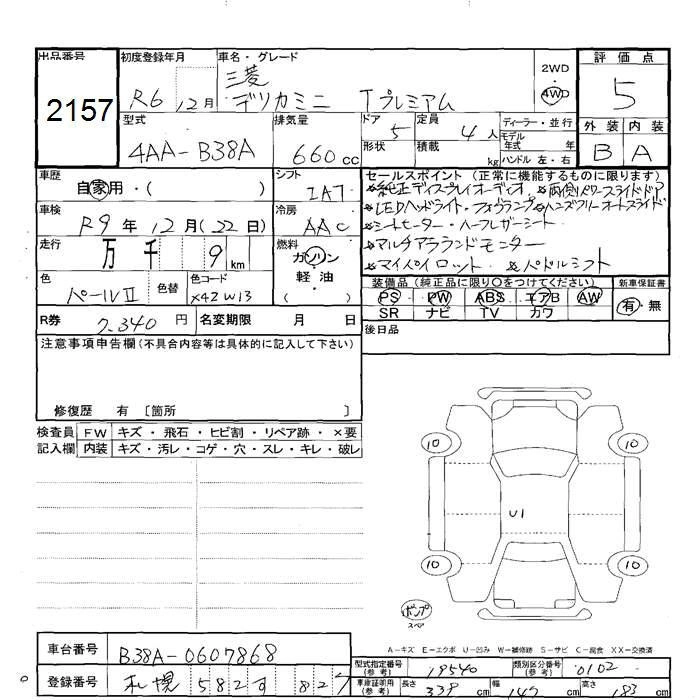 出品番号 初度登録年月 車名・グレード 評価点
2157
R6 12月 三菱 2WD 4WD 5
デリカミニ Tプレミアム
型式 排気量 ドア 定員 ディーラー・並行 外装 内装
4AA-B38A 660cc 5 4人 モデル年式 年 B A
形状 積載 kg ハンドル 左・右
車歴 シフト セールスポイント(正常に機能するものに限ります)
自家用・( ) IAT ※純正ディスプレイオーディオ ※両側パワースライドドア
※LEDヘッドライト・フォグランプ ※ハンズフリーオートスライド
車検 冷房 ※シートヒーター・ハーフレザーシート
R9年 12月(22日) AAC ※マルチアラウンドモニター
走行 燃料 ※マイパイロット ※パドルシフト
万 千 9km ガソリン 軽油 ( )
色 色替 色コード 装備品(純品に限り○をつけてください) 新車保証書
パールII X42W13 PS PW ABS エアB AW 有・無
SR ナビ TV カワ
R券 7.340円 名変期限 月 日 後日品
注意事項申告欄(不具合内容等は具体的に記入して下さい)
修復歴 有 〔箇所 〕
検査員 FW キズ・飛石・ヒビ割・リペア跡・×要
記入欄 内装 キズ・汚レ・コゲ・穴・スレ・キレ・破レ
10 10
U1
10 10
ポンプ
スペア
A-キズ E-エクボ U-凹み W-補修跡 S-サビ C-腐食 XX-交換済
車台番号 B38A-0607868
型式指定番号(参考) 19540 類別区分番号(参考) 0102
登録番号 札幌 582 す 827
車庫証明用(参考) 長さ 339cm 幅 147cm 高さ 183cm